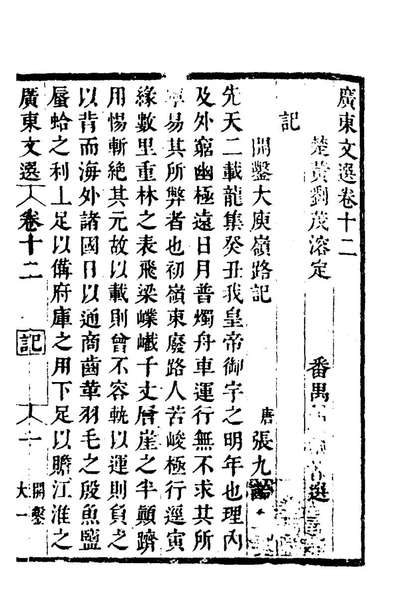 廣東文選卷十二
楚黃劉茂溶定 番禺 選
記
開鑿大庾嶺路記 唐 張九
先天二載龍集癸丑我皇帝御宇之明年也理內
及外窮幽極遠日月普燭舟車運行無不求其所
寧易其所弊者也初嶺東廢路人苦峻極行逕寅
緣數里重林之表飛梁嶫嶻千丈層崖之半顛躋
用惕斬絶其元故以載則曾不容軌以運則負之
以背而海外諸國日以通商齒革羽毛之殷魚鹽
蜃蛤之利上足以備府庫之用下足以贍江淮之
廣東文選 卷十二 記 一 開鑿大一